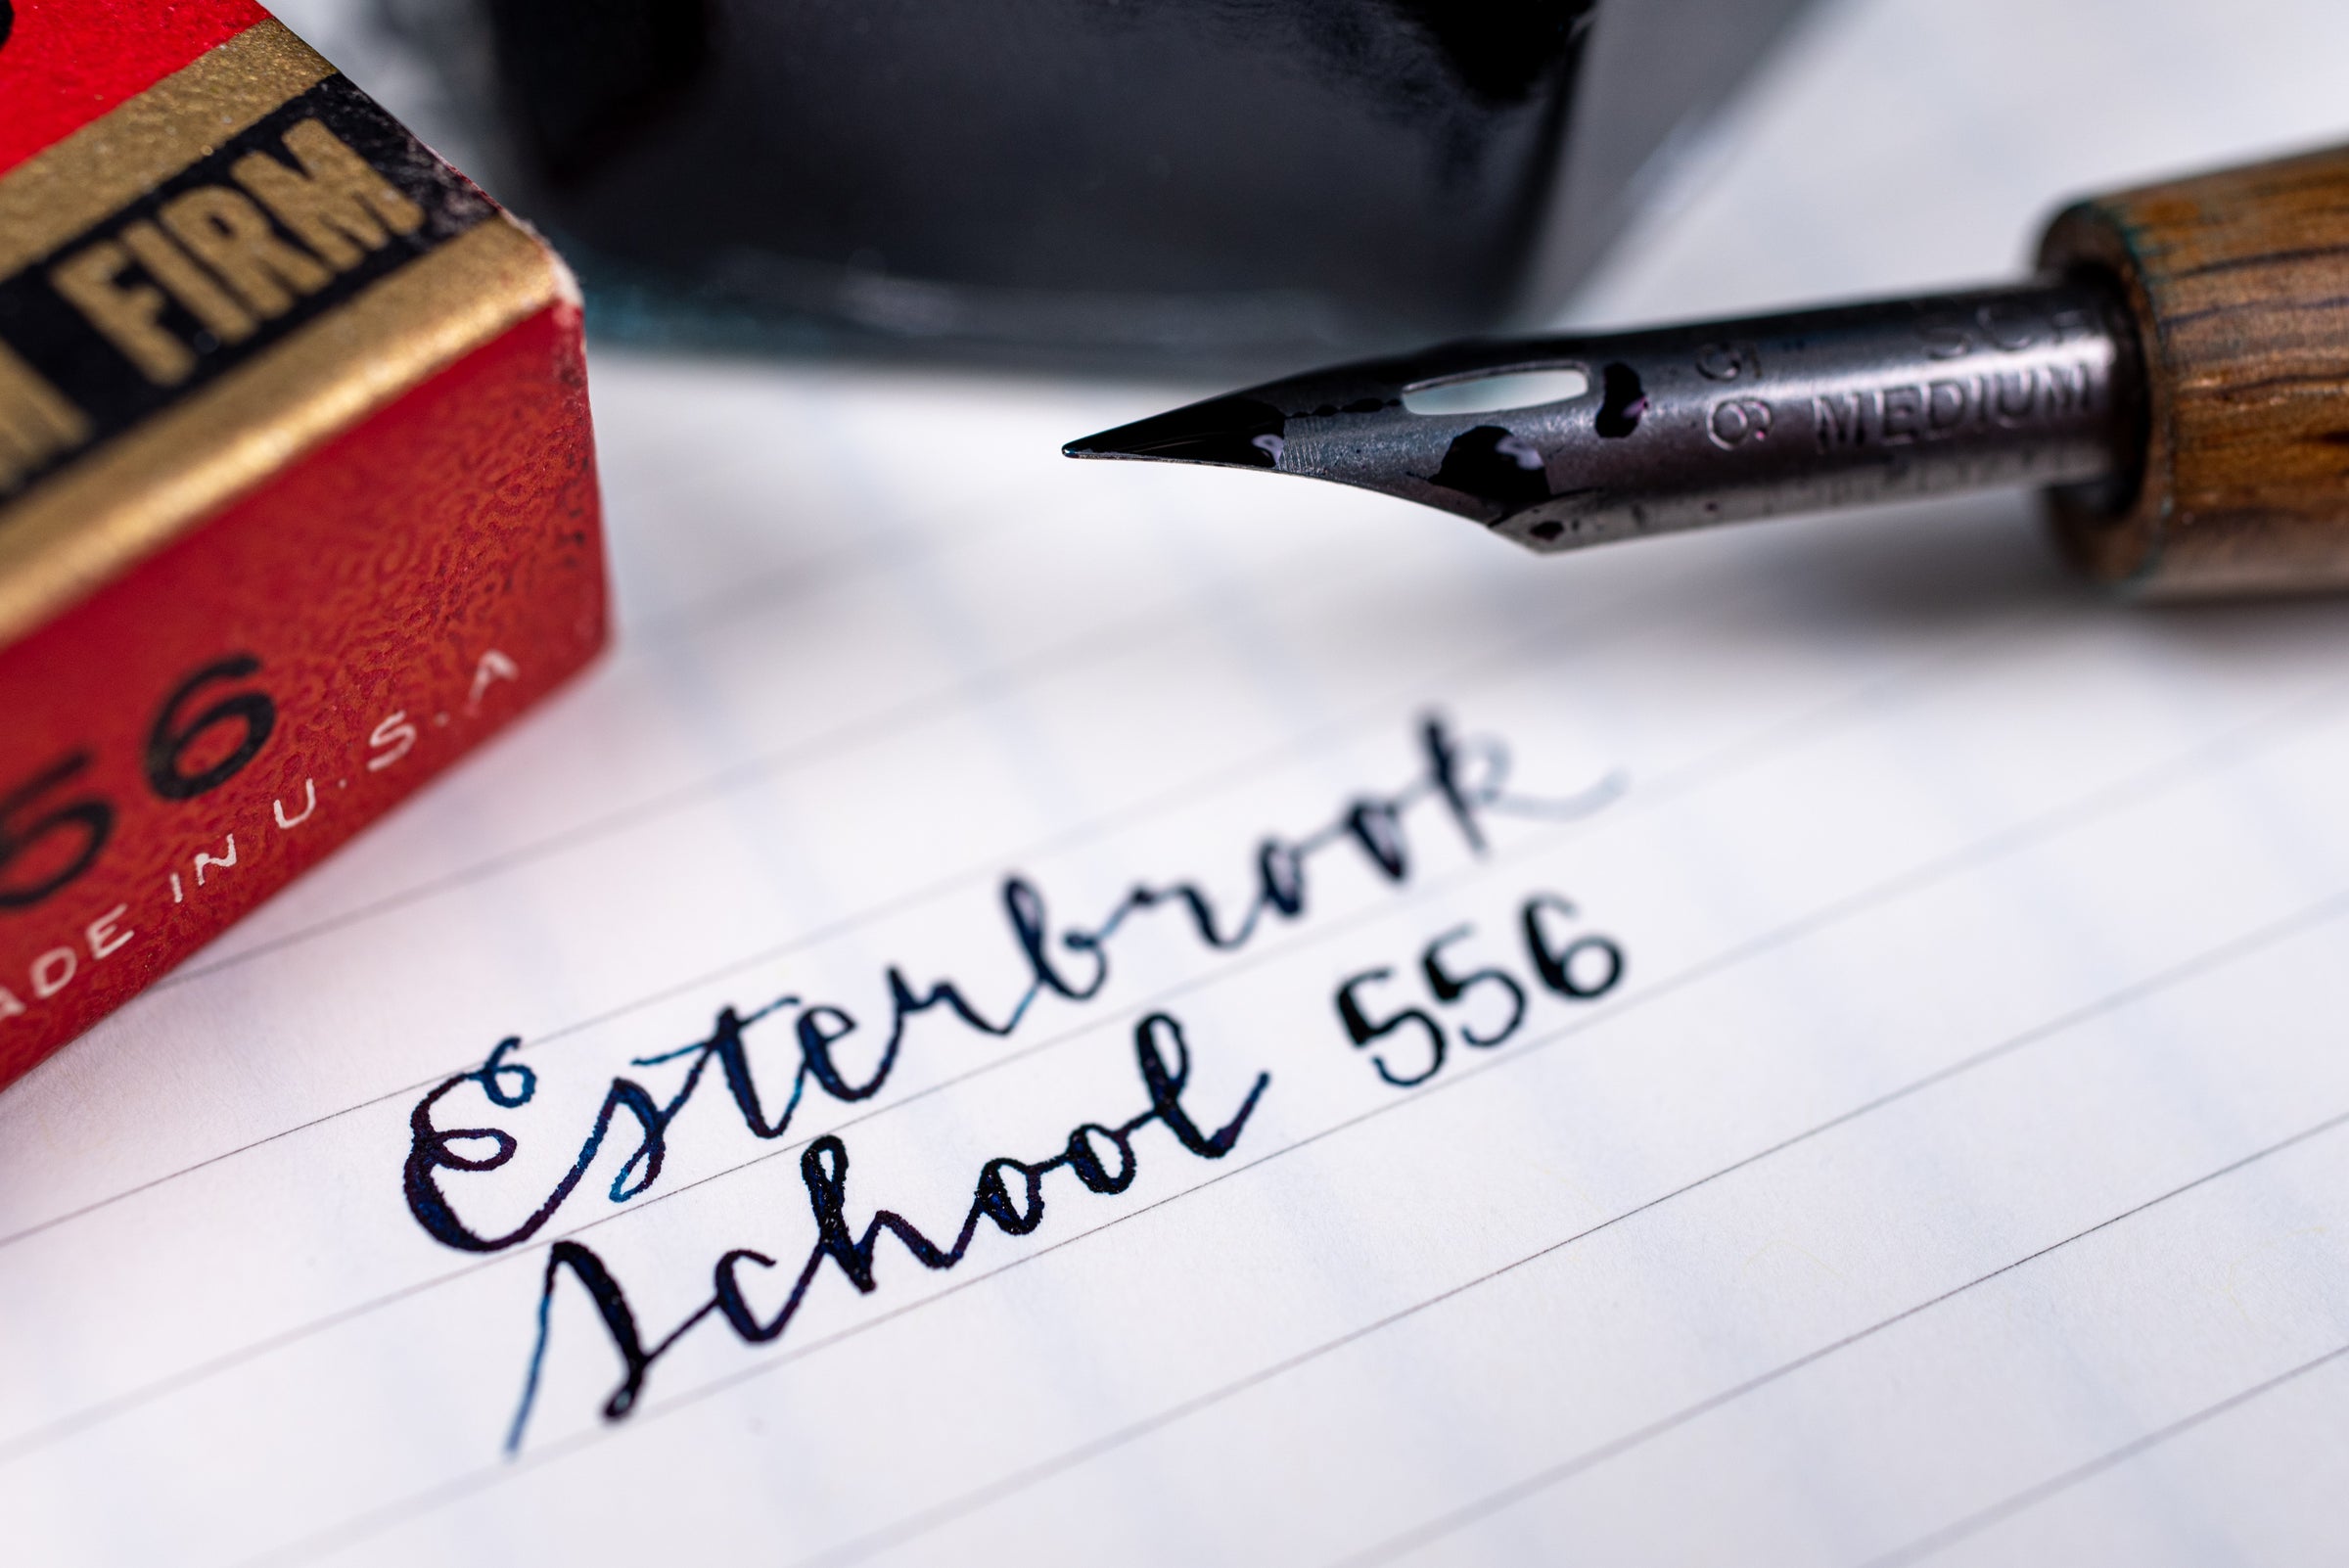 FIRM
56
ADE IN U.S.A
556
MEDIUM
Esterbrook
School 556